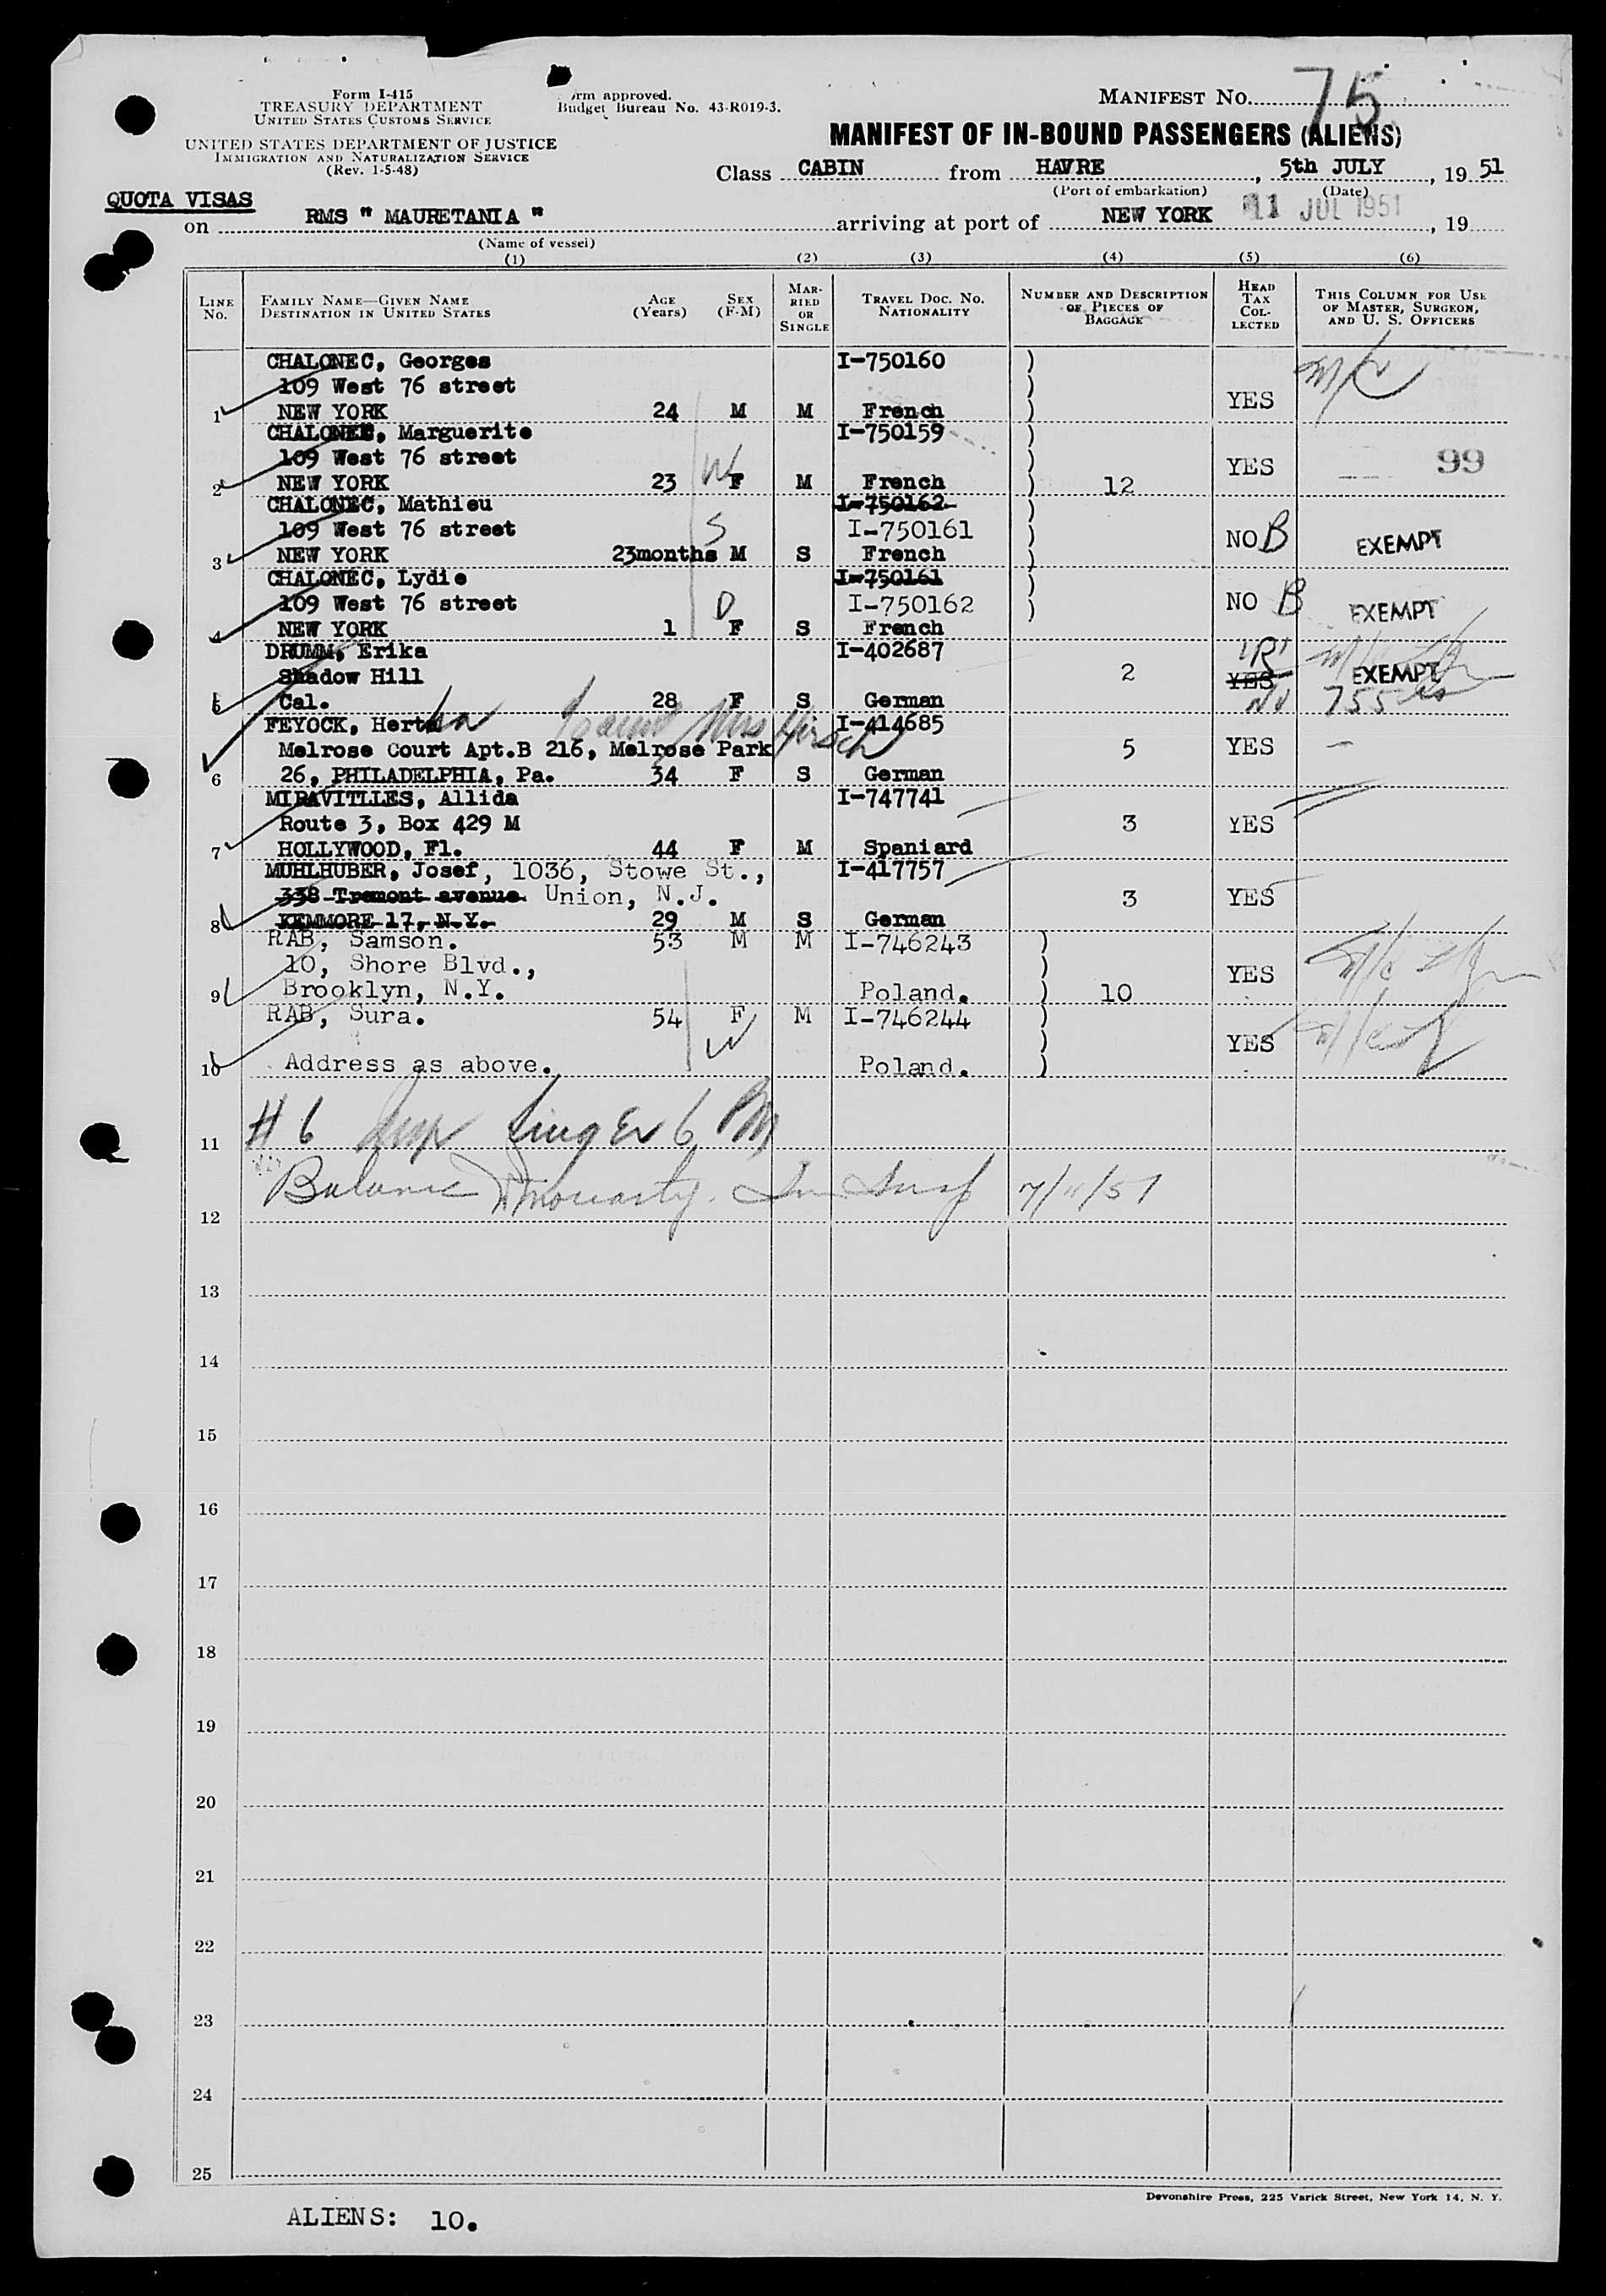 Form I-415
TREASURY DEPARTMENT
UNITED STATES CUSTOMS SERVICE
UNITED STATES DEPARTMENT OF JUSTICE
IMMIGRATION AND NATURALIZATION SERVICE
(Rev. 1-5-48)
rm approved.
Budget Bureau No. 43-R019-3.
MANIFEST NO. 75
MANIFEST OF IN-BOUND PASSENGERS (ALIENS)
Class CABIN from HAVRE, 5th JULY, 19 51
(Port of embarkation) (Date)
QUOTA VISAS
on RMS " MAURETANIA " arriving at port of NEW YORK 11 JUL 1951, 19
(Name of vessel)
(1) (2) (3) (4) (5) (6)
LINE NO.
FAMILY NAME—GIVEN NAME
DESTINATION IN UNITED STATES
AGE (Years)
SEX (F-M)
MARRIED OR SINGLE
TRAVEL DOC. NO. NATIONALITY
NUMBER AND DESCRIPTION OF PIECES OF BAGGAGE
HEAD TAX COLLECTED
THIS COLUMN FOR USE OF MASTER, SURGEON, AND U. S. OFFICERS
CHALONEC, Georges I-750160
109 West 76 street YES
1 NEW YORK 24 M M French
CHALONEC, Marguerite I-750159
109 West 76 street W YES 99
2 NEW YORK 23 F M French 12
CHALONEC, Mathieu I-750162
109 West 76 street S I-750161 NO B EXEMPT
3 NEW YORK 23months M S French
CHALONEC, Lydie I-750161
109 West 76 street D I-750162 NO B EXEMPT
4 NEW YORK 1 F S French
DRUMM, Erika I-402687
Shadow Hill 2 YES EXEMPT
5 Cal. 28 F S German NO 755
FEYOCK, Hertha I-414685
Melrose Court Apt.B 216, Melrose Park 5 YES
6 26, PHILADELPHIA, Pa. 34 F S German
MIRAVITLLES, Allida I-747741
Route 3, Box 429 M 3 YES
7 HOLLYWOOD, Fl. 44 F M Spaniard
MUHLHUBER, Josef, 1036, Stowe St., I-417757
338 Tremont avenue Union, N.J. 3 YES
8 KENMORE 17, N.Y. 29 M S German
RAB, Samson. 53 M M I-746243
10, Shore Blvd., YES
9 Brooklyn, N.Y. Poland. 10
RAB, Sura. 54 F M I-746244
W YES
10 Address as above. Poland.
11 # 6 Singer 6 PM
12 Balance Moriarty. Im Insp 7/11/51
13
14
15
16
17
18
19
20
21
22
23
24
25
Devonshire Press, 225 Varick Street, New York 14, N. Y.
ALIENS: 10.